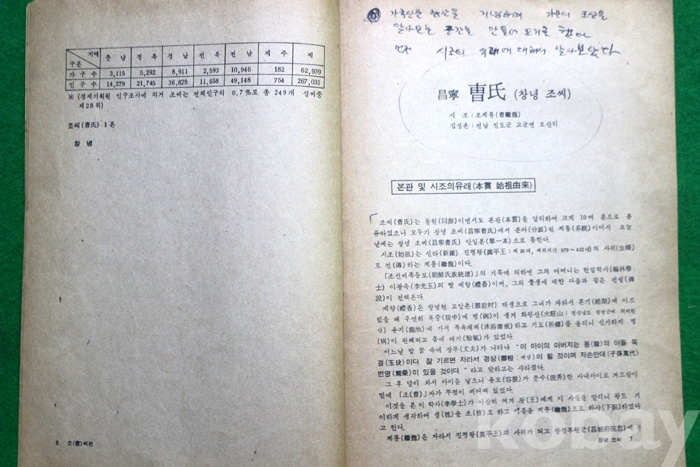 지역 구분 충남 경북 경남 전북 전남 제주 계
가구수 3,115 5,292 8,911 2,593 10,946 182 62,939
인구수 14,279 21,745 36,829 11,658 49,148 754 267,031
※ (경제기획원 인구조사에 의거 조씨는 전체인구의 0.7%로 총 249개 성씨중
제28위)
조씨(曺氏) 1본
창녕
6 조(曺)씨편
가족신문 현장을 가문의 조상을
알아보는 공간을 만들어 보기로 했다
먼저 시조의 유래에 대해서 알아보았다
昌寧 曺氏 (창녕 조씨)
시 조 : 조계룡(曺繼龍)
집성촌 : 전남 진도군 고군면 오산리
본관 및 시조의유래(本貫 始祖由來)
조씨(曺氏)는 동원(同源)이면서도 본관(本貫)을 달리하여 크게 10여 본으로 분
류하였으나 모두가 창녕 조씨(昌寧曺氏)에서 분파(分派)된 계통(系統)이어서 오늘
날에는 창녕 조씨(昌寧曺氏) 단일본(單一本)으로 통한다.
시조(始祖)는 신라(新羅) 진평왕(眞平王: 제26대, 재위기간 579~632년)의 사위(女壻)
로 전(傳)하는 계룡(繼龍)이다.
「조선씨족통보(朝鮮氏族統譜)」의 기록에 의하면 그의 어머니는 한림학사(翰林學
士) 이광옥(李光玉)의 딸 예향(禮香)이며, 그의 출생에 대한 다음과 같은 전설(傳
說)이 전해온다.
예향(禮香)은 창녕현 고암촌(鼓岩村) 태생으로 그녀가 자라서 혼기(婚期)에 이르
렀을 때 우연히 복중(腹中)에 병(病)이 생겨 화왕산(火旺山: 경상남도 창녕군에 위치한
산) 용지(龍池)에 가서 목욕재계(沐浴齋戒)하고 기도(祈禱)를 올리니 신기하게 병
(病)이 완쾌되고 몸에 태기(胎氣)가 있었다.
어느날 밤 꿈 속에 장부(丈夫)가 나타나 "이 아이의 아버지는 용(龍)의 아들 옥
결(玉玦)이다. 잘 기르면 자라서 경상(卿相: 재상)이 될 것이며 자손만대(子孫萬代)
번영(繁榮)이 있을 것이다." 라고 말하고는 사라졌다.
그 후 달이 차서 아이를 낳으니 용모(容貌)가 준수(俊秀)한 사내아이로 겨드랑이
밑에 「조(曺)」자가 뚜렷이 씌어져 있었다.
이것을 본 이학사(李學士)가 이상히 여겨 왕(王)에게 이 사실을 알리니 왕도 기
이하게 생각하여 성(姓)을 조(曺)로 하고 이름을 계룡(繼龍)으로 하사(下賜)하였다
고 한다.
계룡(繼龍)은 자라서 진평왕(眞平王)의 사위가 되고 창성부원군(昌城府院君)에
창녕 조씨 7
kobay